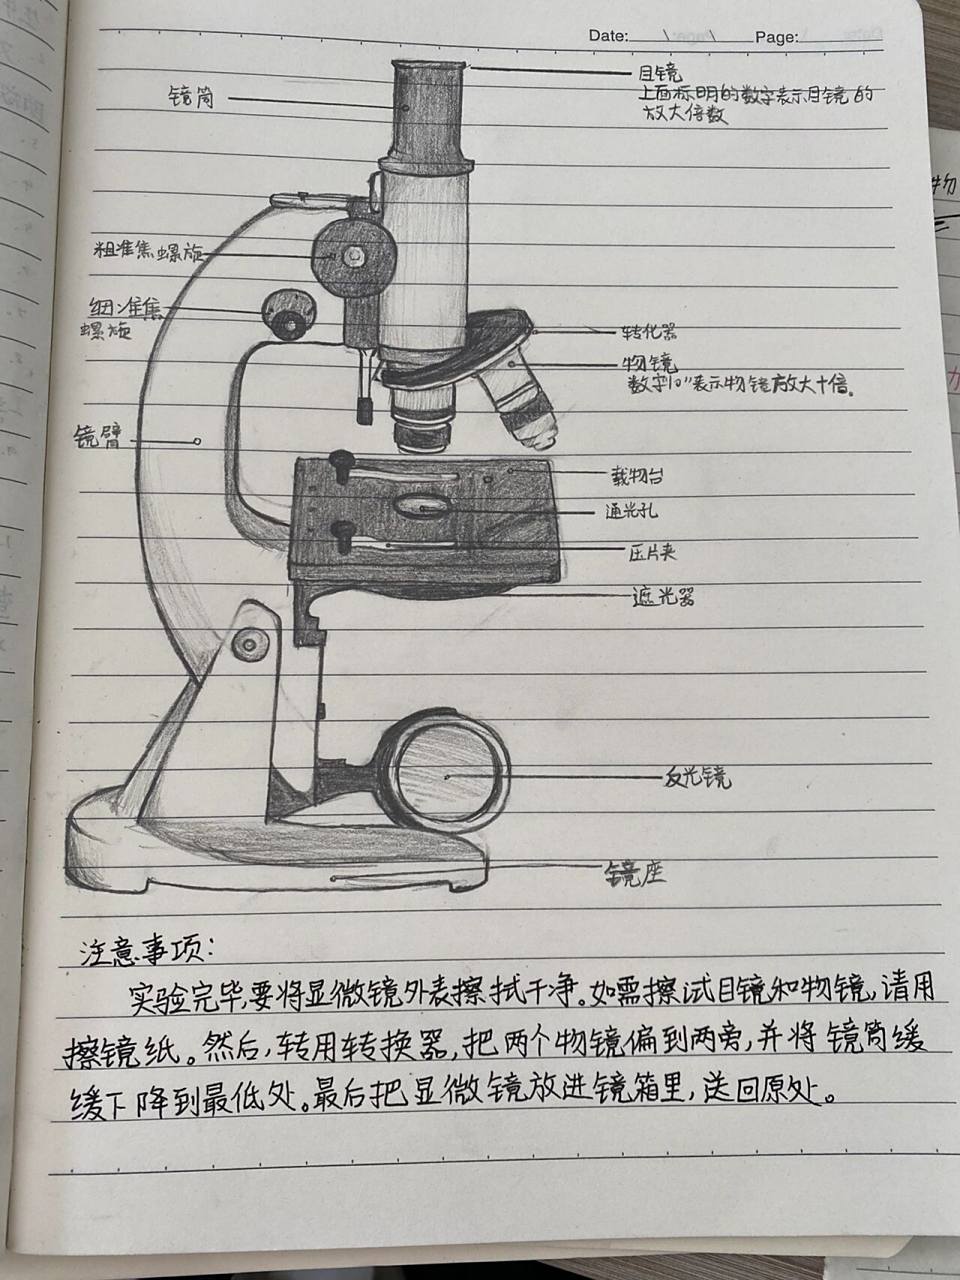 Date: \ \ Page:
目镜
镜筒
上面标明的数字表示目镜的
放大倍数
粗准焦螺旋
细准焦
螺旋
转化器
物镜
数字10"表示物镜放大十倍。
镜臂
载物台
通光孔
压片夹
遮光器
反光镜
镜座
注意事项：
实验完毕，要将显微镜外表擦拭干净。如需擦试目镜和物镜，请用
擦镜纸。然后，转用转换器，把两个物镜偏到两旁，并将镜筒缓
缓下降到最低处。最后把显微镜放进镜箱里，送回原处。
物